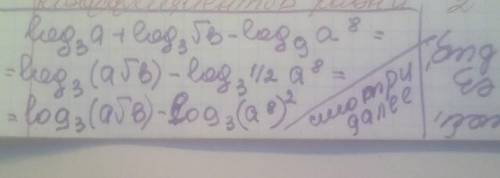 log₃a + log₃√в - log₉ a⁸ =
= log₃(a√в) - log₃1/2 a⁸ =
= log₃(a√в) - log₃(a⁸)²
смотри
далее